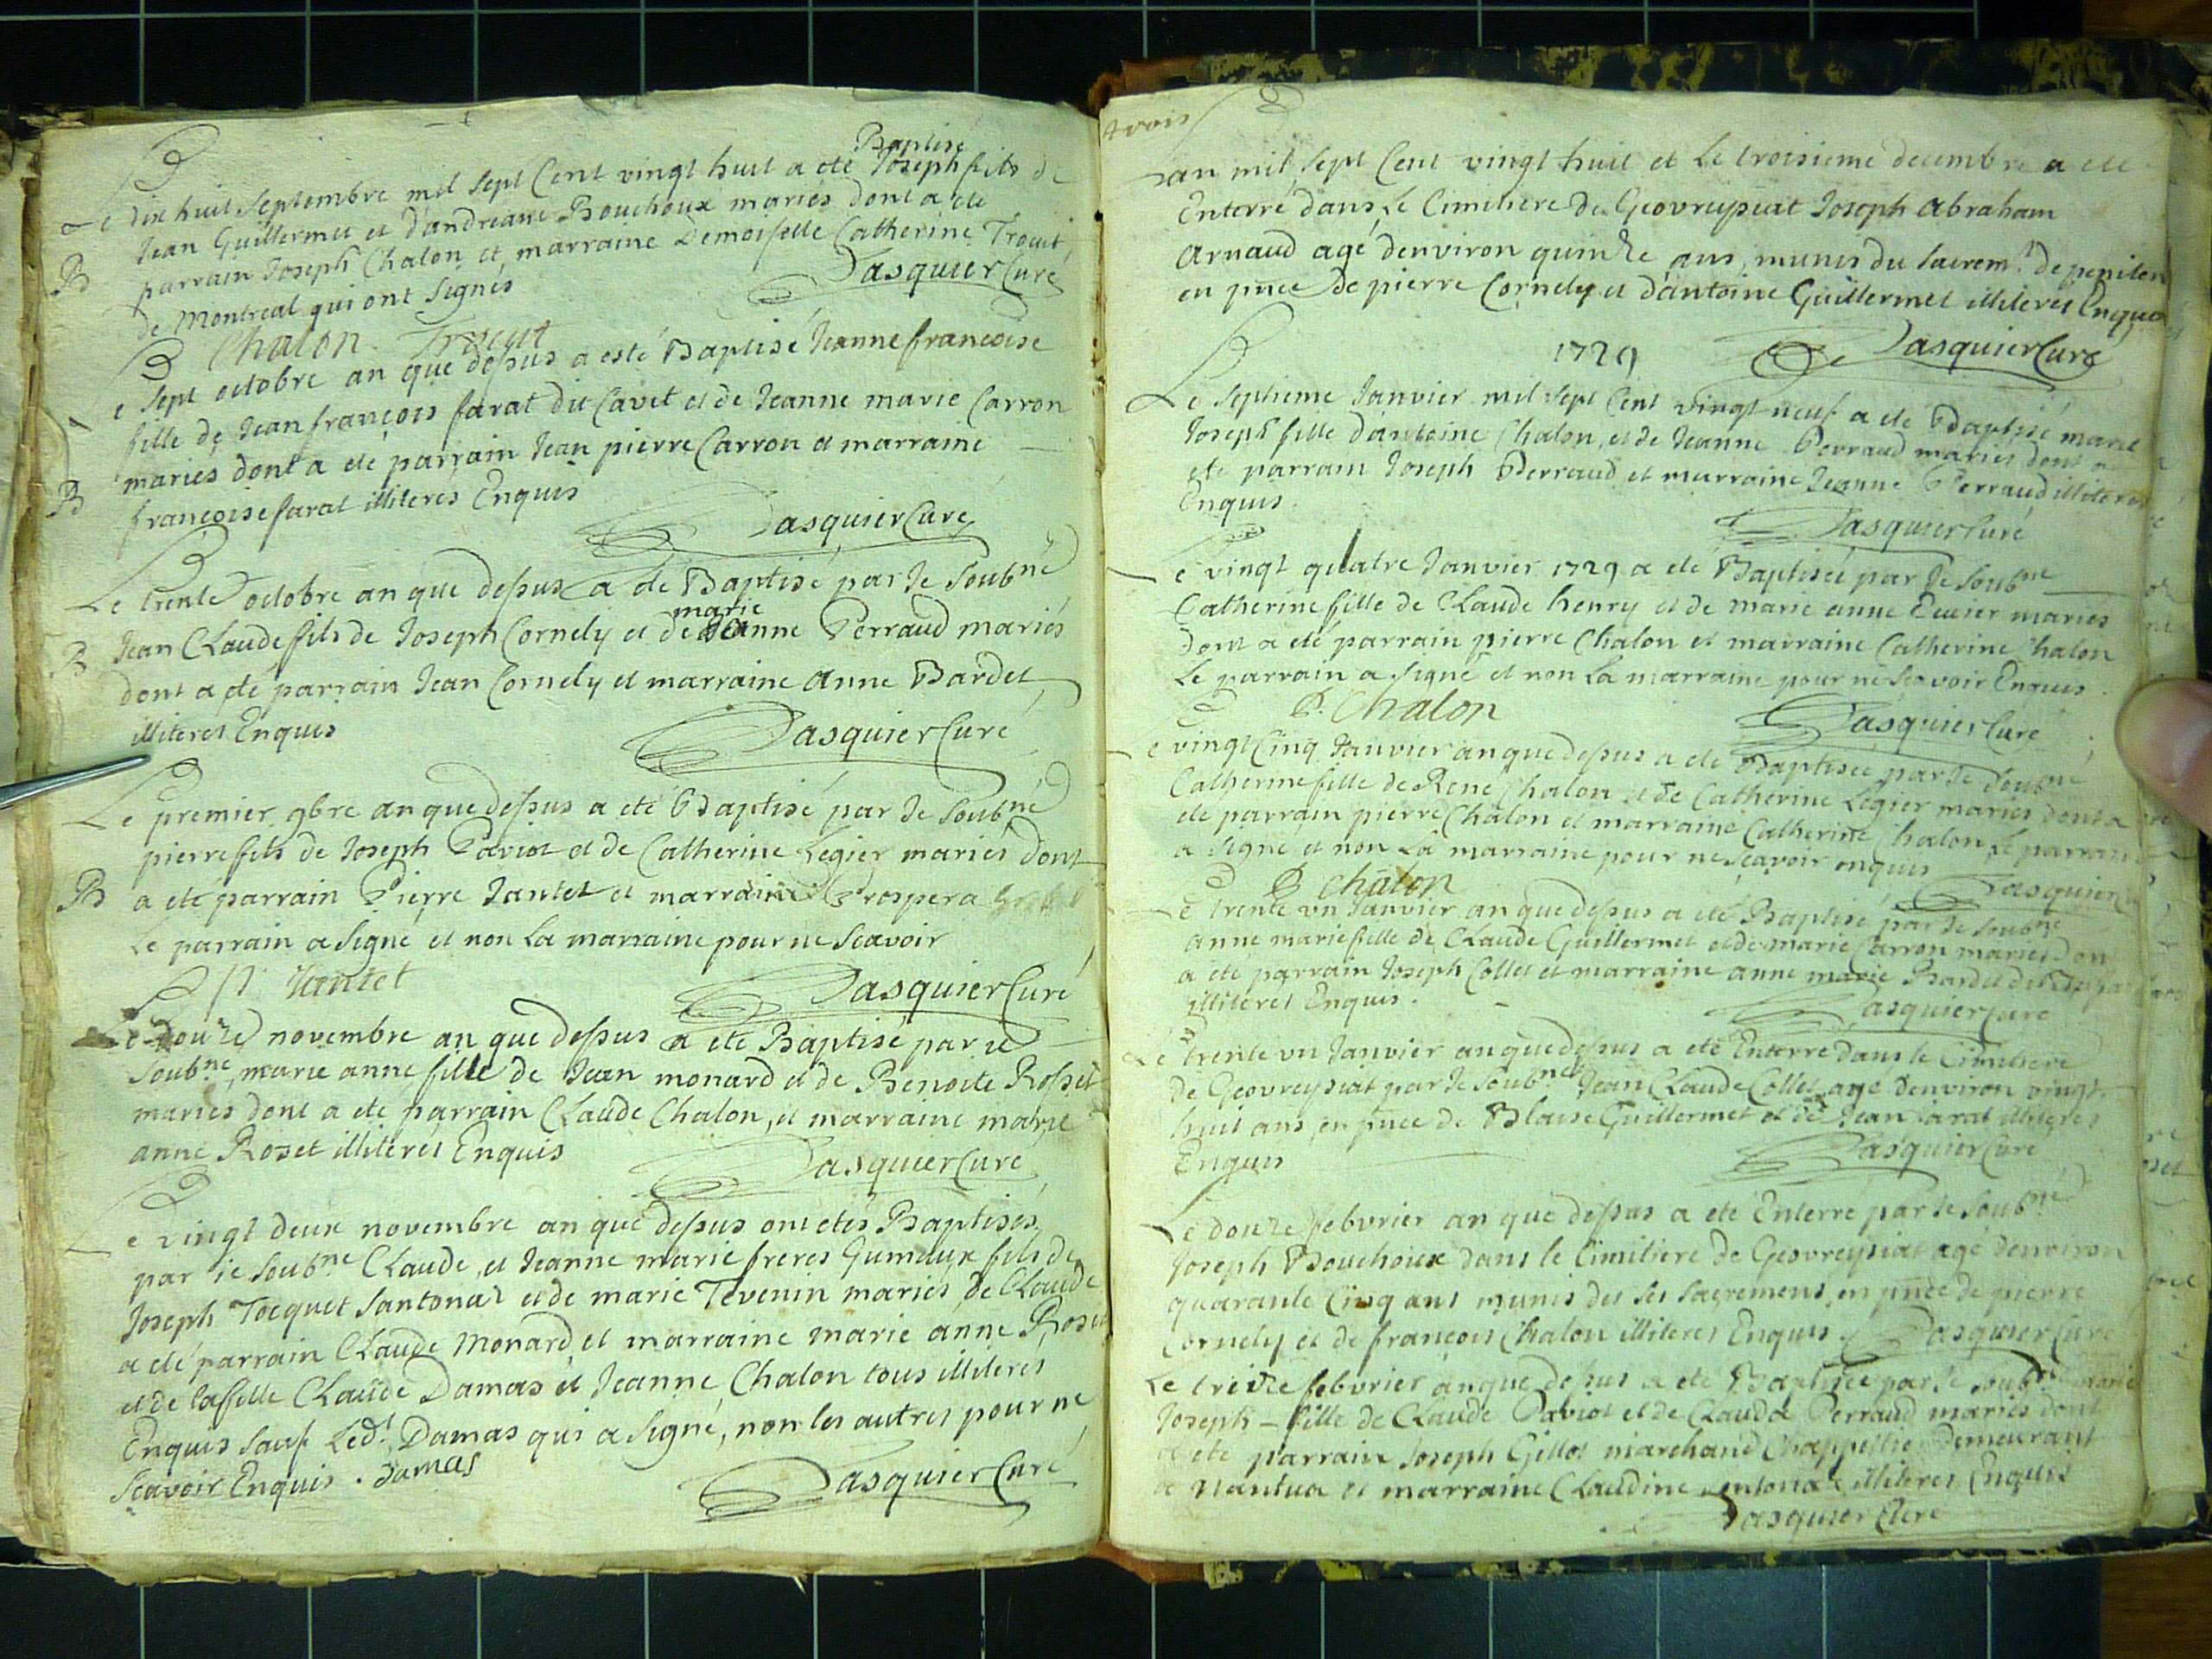 Baptisé
Le dix huit septembre mil sept Cent vingt huit a eté Joseph fils de
Jean Guillermet et d'andreane Bouchoux mariés dont a eté
B parrain Joseph Chalon et marraine Demoiselle Catherine Trocut
de Montreal qui ont signés Pasquier Curé
Chalon. Trocut
Le sept octobre an que dessus a esté Baptisé Jeanne francoise
fille de Jean françois farat dit Cavet et de Jeanne marie Carron
mariés dont a eté parrain Jean pierre Carron et marraine
B francoise farat illiterés Enquis
Pasquier Curé
Le trente octobre an que dessus a eté Baptisé par Je Soubne
marie
B Jean Claude fils de Joseph Cornely et de anne Perraud mariés
dont a eté parrain Jean Cornely et marraine anne Bardet
illiteres Enquis Pasquier Curé
Le premier 9bre an que dessus a eté Baptisé par Je Soubne
pierre fils de Joseph Paviot et de Catherine Legier mariés dont
B a eté parrain Pierre Jantet et marraine Prospera
Le parrain a signé et non La marraine pour ne Scavoir
P Jantet Pasquier Curé
Le Douze novembre an que dessus a eté Baptisé par Je
Soubne, marie anne fille de Jean monard et de Benoite Rosset
mariés dont a eté parrain Claude Chalon, et marraine marie
anne Roset illiterés Enquis Pasquier Curé
Le vingt deux novembre an que dessus ont etés Baptisés
par Je soubne Claude, et Jeanne marie freres Gumaux fils de
Joseph Tocquet Santonaz et de marie Tevenin mariés, de Claude
a eté parrain Claude Monard et marraine marie anne Roset
et de la fille Claude Damas et Jeanne Chalon tous illiterés
Enquis sauf Ledt. Damas qui a signé, non les autres pour ne
Scavoir Enquis. Damas Pasquier Curé
trois
Lan mil sept Cent vingt huit et Le troisieme decembre a eté
Enterré dans Le Cimitiere de Geovreissiat Joseph abraham
Arnaud agé denviron quinze ans, munis du sacremt. de peniten
en pnce de pierre Cornely et d'antoine Guillermet illiterés Enquis
1729 Pasquier Curé
Le septieme Janvier mil sept Cent vingt neuf a eté Baptisé marie
Joseph fille d'antoine Chalon, et de Jeanne Perraud mariés dont a
eté parrain Joseph Perraud et marraine Jeanne Perraud illiteres
Enquis. Pasquier Curé
Le vingt quatre Janvier 1729 a eté Baptiseé par Je Soubne
Catherine fille de Claude henry et de marie anne Ecuier mariés
dont a eté parrain pierre Chalon et marraine Catherine Chalon
Le parrain a signé et non La marraine pour ne Scavoir Enquis
P. Chalon Pasquier Curé
Le vingt Cinq Janvier an que dessus a eté Baptiseé par Je Soubne
Catherine fille de René Chalon et de Catherine Legier mariés dont a
eté parrain pierre Chalon et marraine Catherine Chalon, le parrain
a signé et non La marraine pour ne Scavoir enquis
P chalon Pasquier
Le trente un Janvier an que dessus a eté Baptisé par Je Soubne
anne marie fille de Claude Guillermet et de marie Carron mariés dont
a eté parrain Joseph Collet et marraine anne marie Bardet
illiterés Enquis. Pasquier Curé
Le trente un Janvier an que dessus a eté Enterré dans le Cimitiere
de Geovreyssiat par Je soubne Jean Claude Collet agé denviron vingt
huit ans, en pnce de Blaise Guillermet et de Jean farat illiterés
Enquis Pasquier Curé
Le douze febvrier an que dessus a eté Enterré par Je Soubne
Joseph Bouchoux dans le Cimitiere de Geovreyssiat agé denviron
quarante Cinq ans munis des ses sacremens, en pnce de pierre
Cornely et de francois Chalon illiteres Enquis. Pasquier Curé
Le treize febvrier an que dessus a eté Baptiseé par Je soubne marie
Joseph - fille de Claude Paviot et de Clauda Perraud mariés dont
a eté parrain Joseph Gillot marchand Chappellie Demeurant
a Nantua et marraine Claudine Santonaz illiteres Enquis
Pasquier Curé